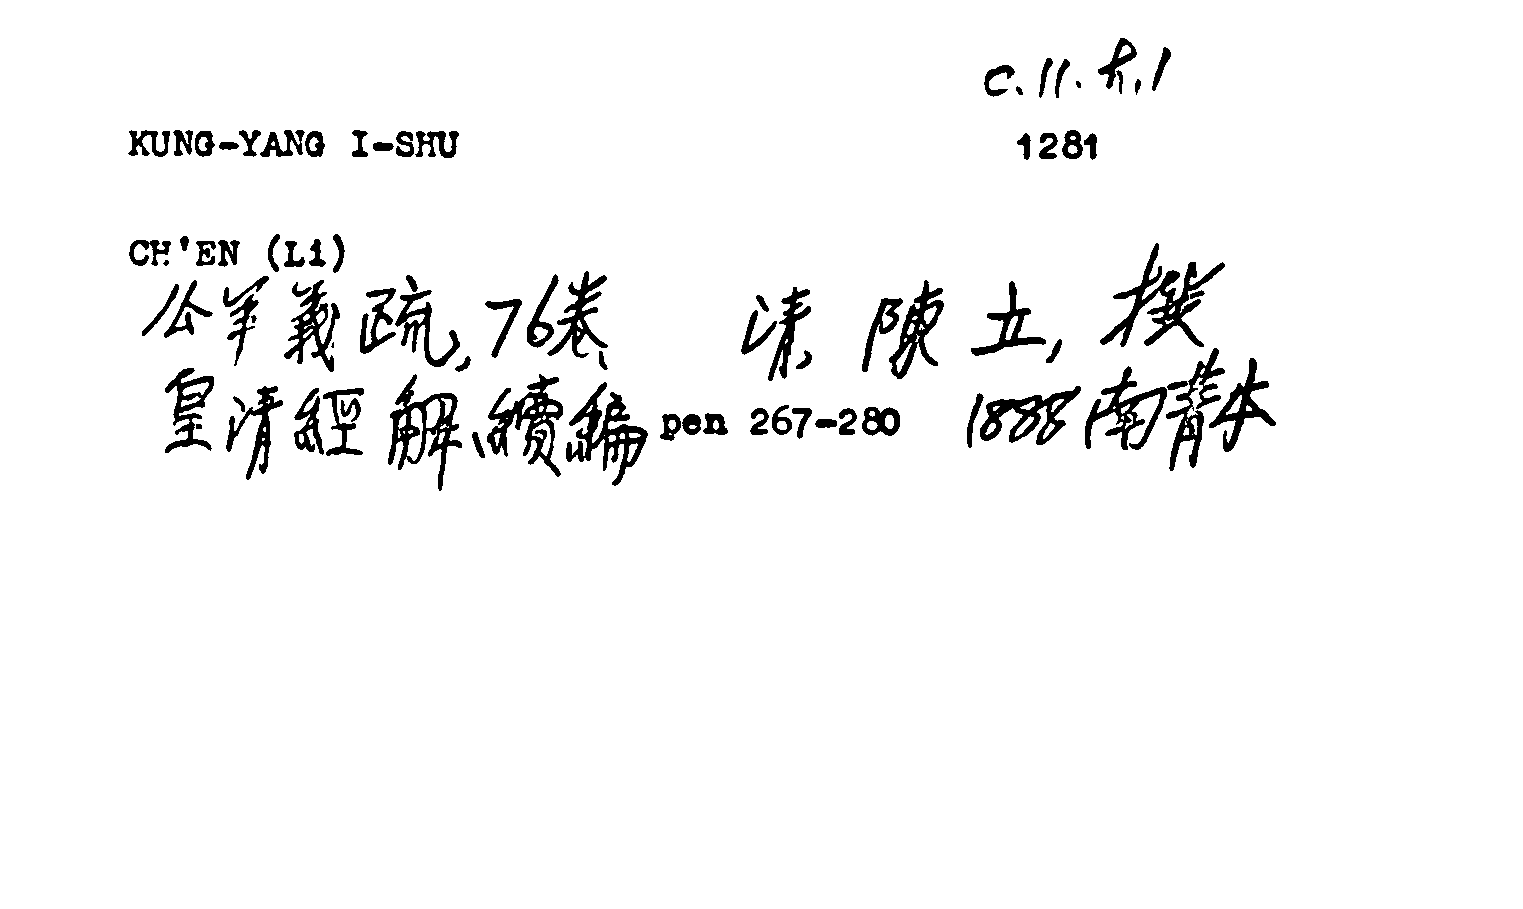 C.11.h.1
KUNG-YANG I-SHU 1281
CH'EN (Li)
公羊義疏, 76卷 清 陳立, 撰
皇清經解續編 pen 267-280 1888 南菁本